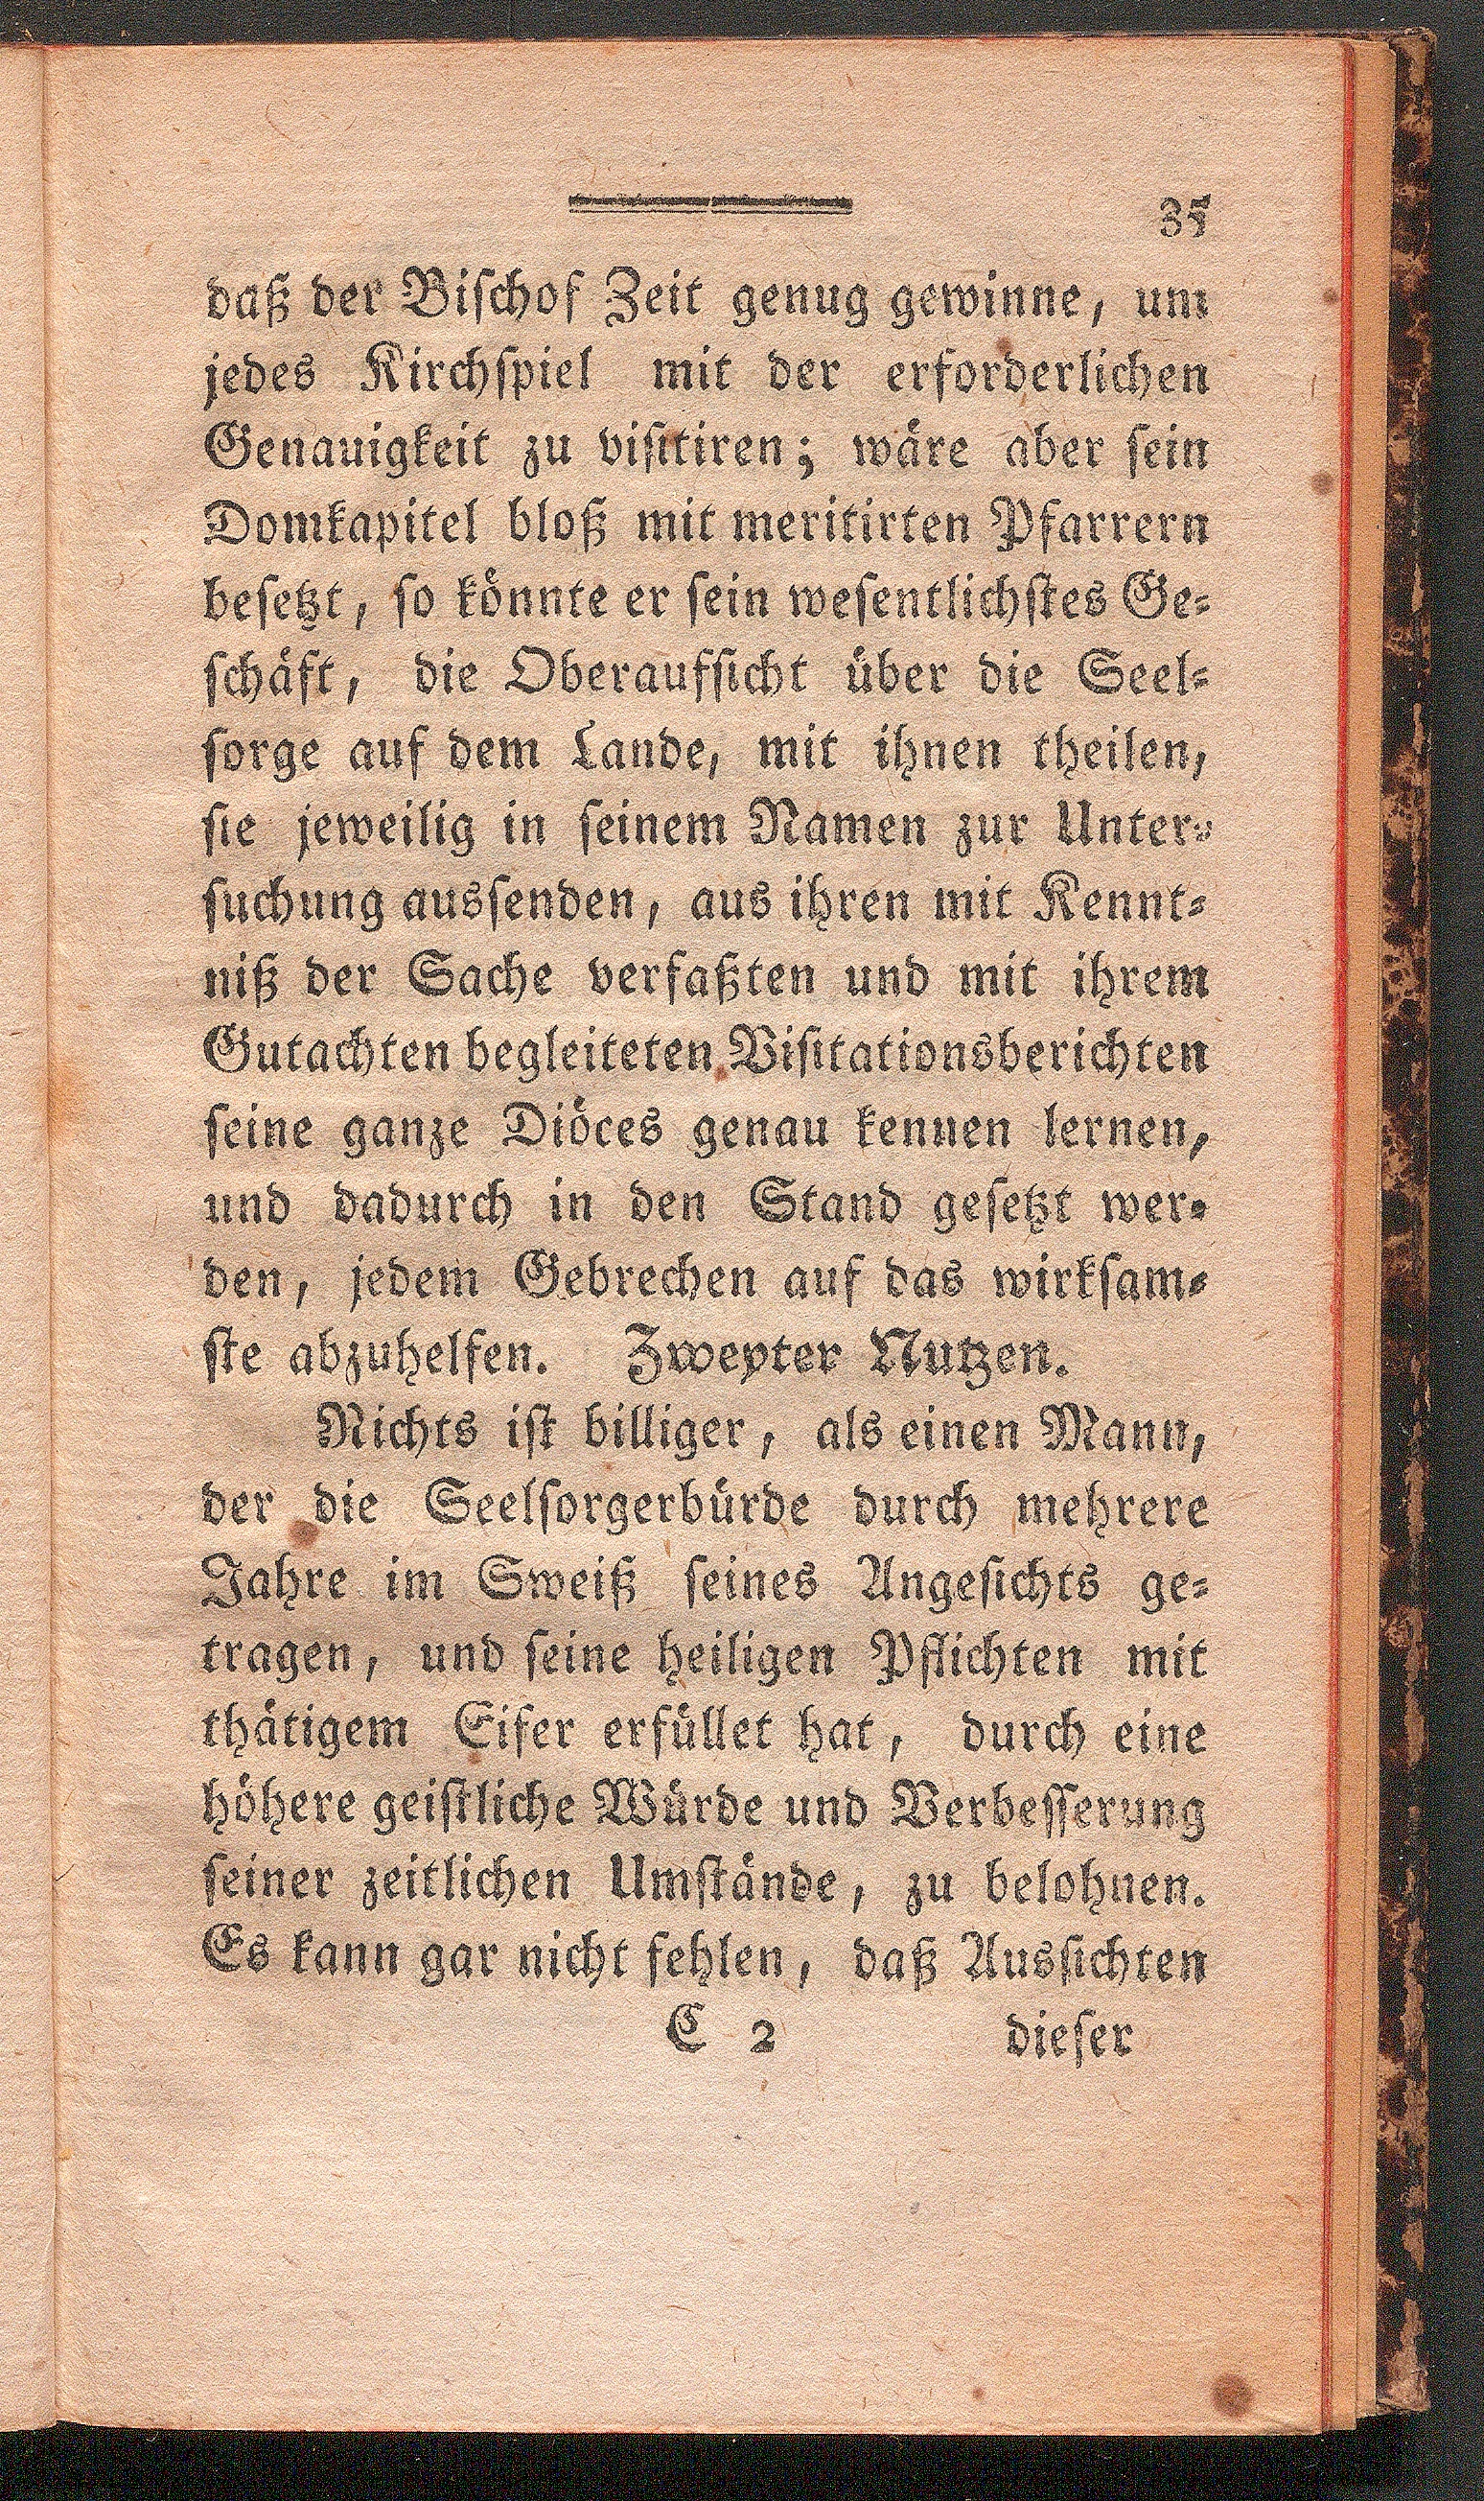 35
daß der Biſchof Zeit genug gewinne, um
jedes Kirchſpiel mit der erforderlichen
Genauigkeit zu viſitiren; wäre aber ſein
Domkapitel bloß mit meritirten Pfarrern
beſetzt, ſo könnte er ſein weſentlichſtes Ge⸗
ſchäft, die Oberaufſicht über die Seel⸗
ſorge auf dem Lande, mit ihnen theilen,
ſie jeweilig in ſeinem Namen zur Unter⸗
ſuchung ausſenden, aus ihren mit Kennt⸗
niß der Sache verfaßten und mit ihrem
Gutachten begleiteten Viſitationsberichten
ſeine ganze Diöces genau kennen lernen,
und dadurch in den Stand geſetzt wer⸗
den, jedem Gebrechen auf das wirkſam⸗
ſte abzuhelfen. Zweyter Nutzen.
Nichts iſt billiger, als einen Mann,
der die Seelſorgerbürde durch mehrere
Jahre im Sweiß ſeines Angeſichts ge⸗
tragen, und ſeine heiligen Pflichten mit
thätigem Eifer erfüllet hat, durch eine
höhere geiſtliche Würde und Verbeſſerung
ſeiner zeitlichen Umſtände, zu belohnen.
Es kann gar nicht fehlen, daß Ausſichten
C 2 dieſer